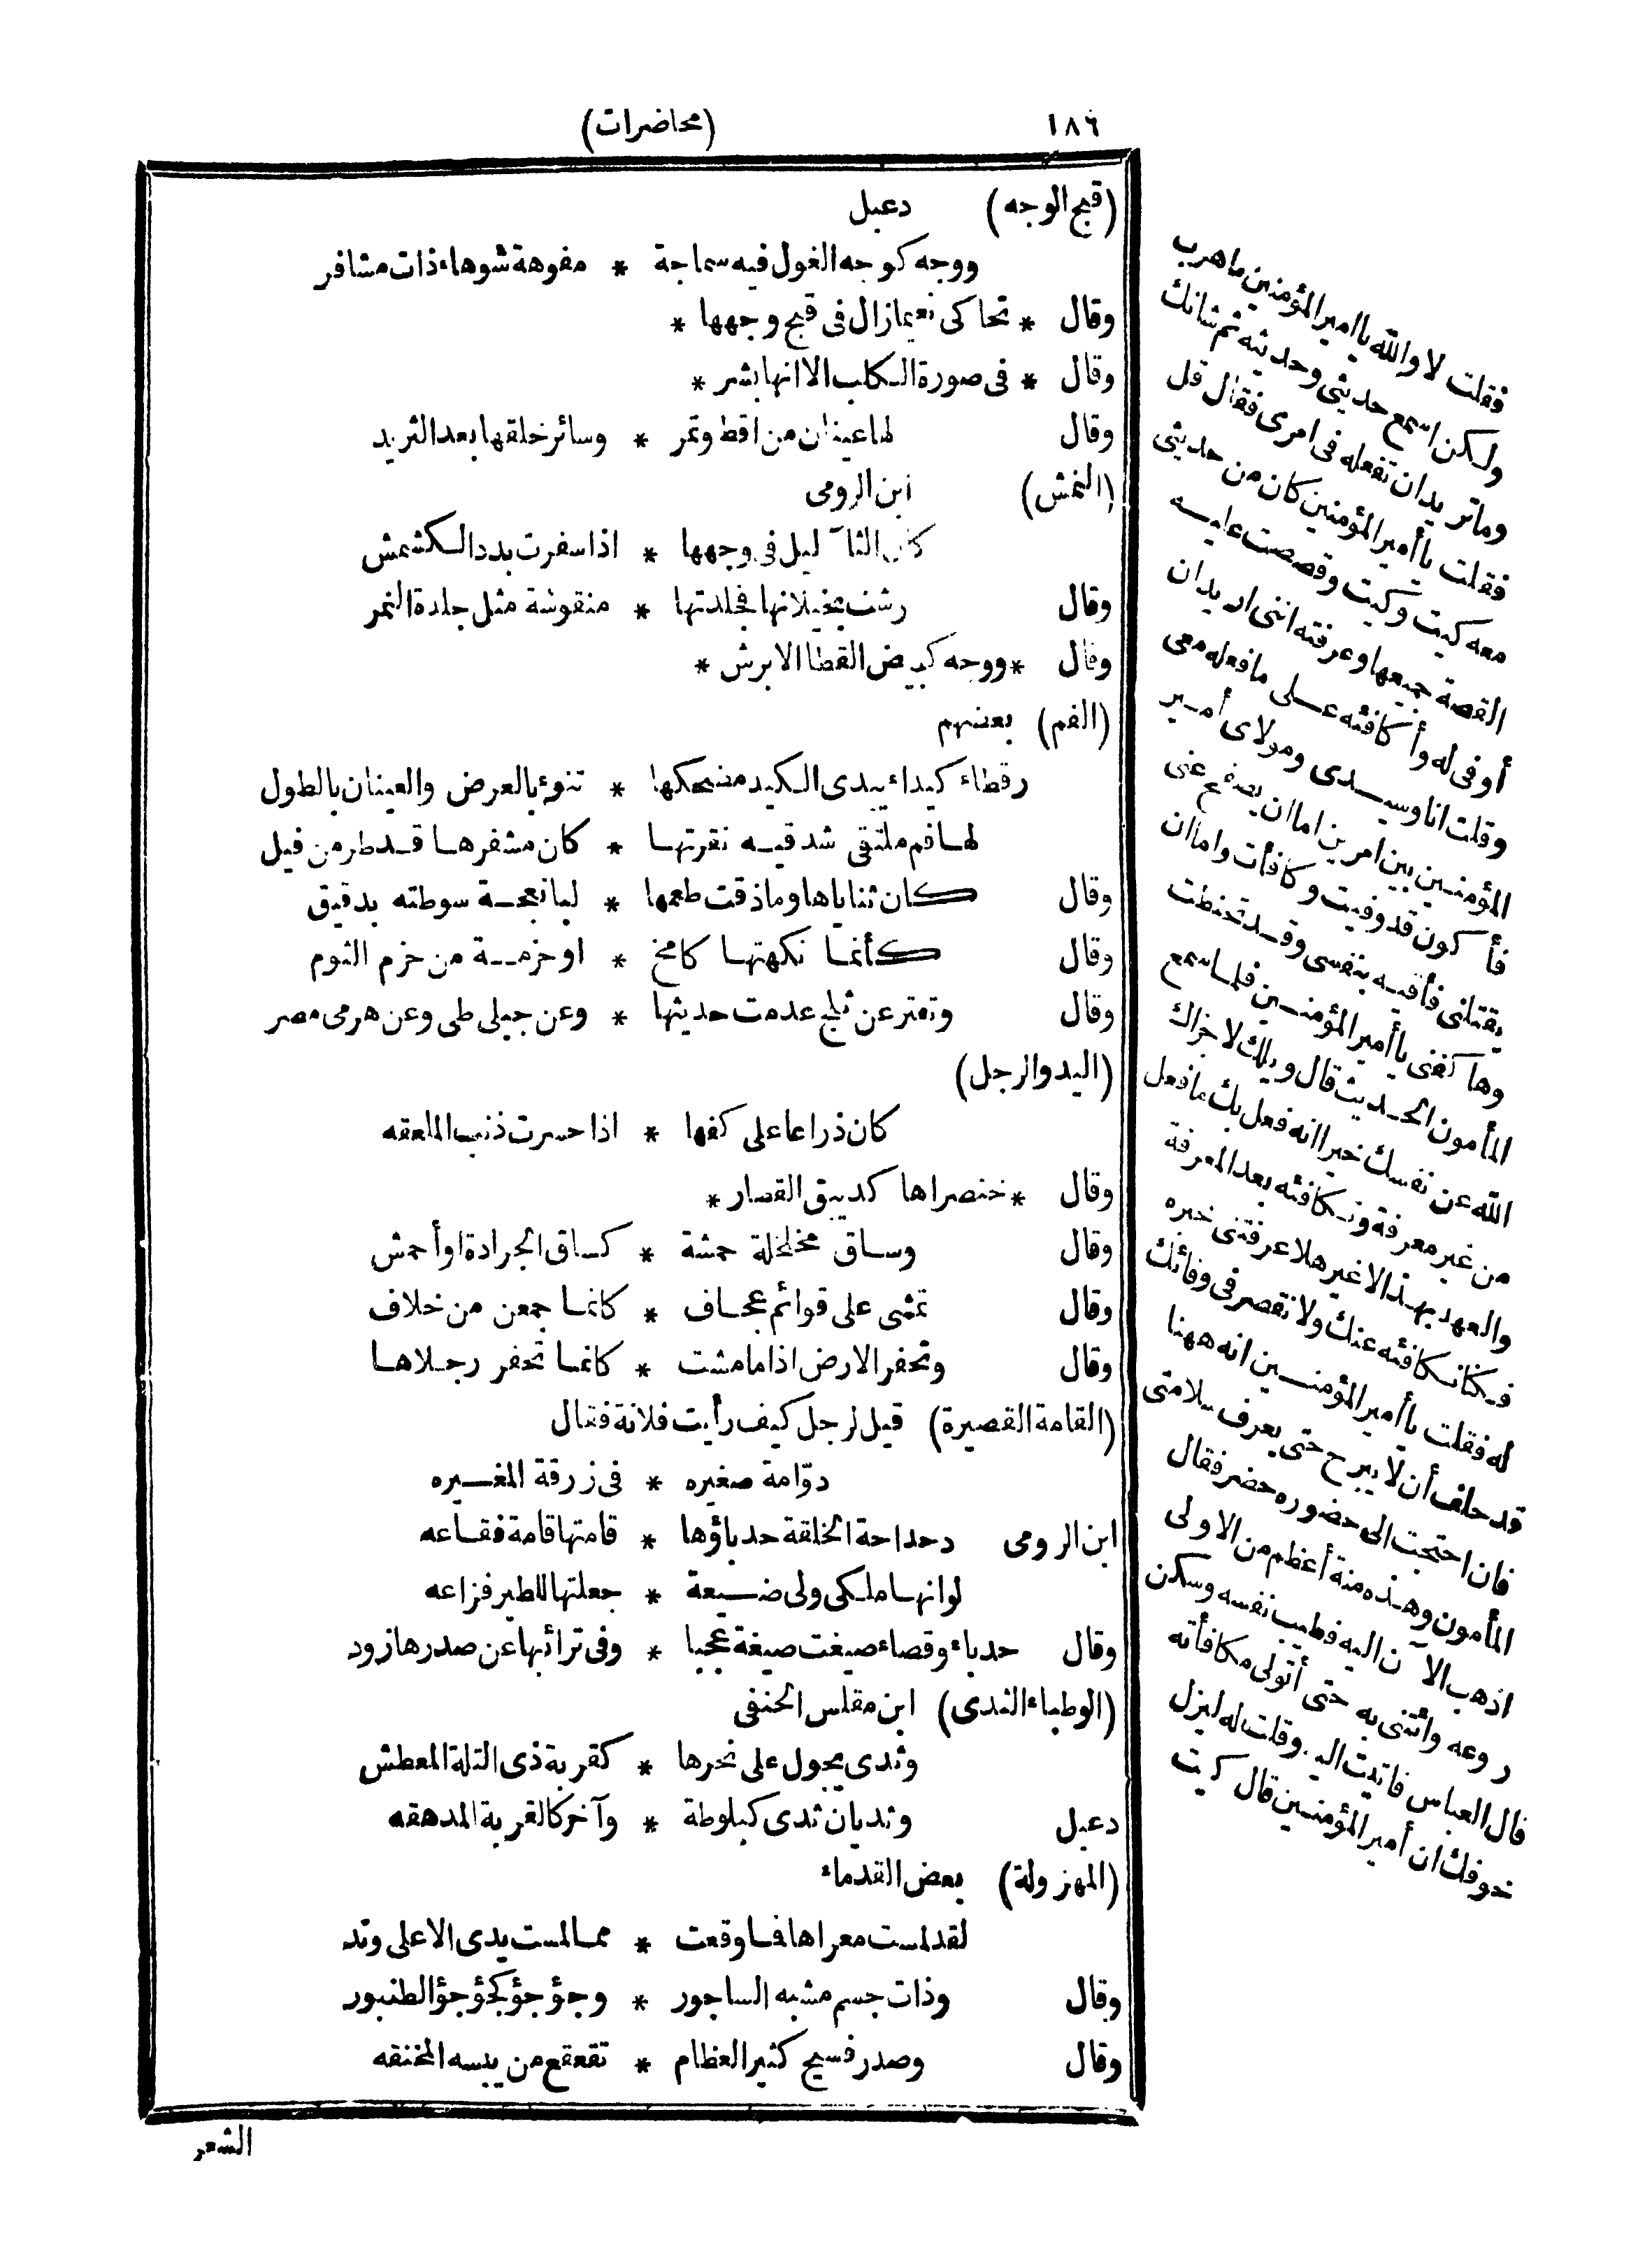 ١٨٦
(محاضرات)
(قبح الوجه) دعبل
ووجه كوجه الغول فيه سماجة * مفوهة شوهاء ذات مشافر
وقال * تحاكى نعيما زال فى قبح وجهها *
وقال * فى صورة الكلب الا انها بشر *
وقال لها عينان من اقط وتمر * وسائر خلقها بعد الثريد
(النمش) ابن الرومى
كأن الثآليل فى وجهها * اذا سفرت بدد الكشمش
وقال بخيلانها فجلدتها * منقوشة مثل جلدة النمر
وقال * ووجه كبيض القطا الابرش *
(الفم) بعضهم
رقطاء كيداء يبدى الكيد مضحكها * تنوء بالعرض والعينان بالطول
لها فم ملتقى شدقيه نقرتها * كان مشفرها قد طر من فيل
وقال كان ثناياها وما ذقت طعمها * لبا نعجة سوطته بدقيق
وقال كأنما نكهتها كامخ * او حزمة من حزم الثوم
وقال وتفتر عن ثلج عدمت حديثها * وعن جبلى طى وعن هرمى مصر
(اليد والرجل)
كان ذراعا على كفها * اذا حسرت ذنب الملعقه
وقال * خنصراها كذيبق القصار *
وقال وساق مخلخلة حمشة * كساق الجرادة او أحمش
وقال تمشى على قوائم عجاف * كانما جمعن من خلاف
وقال وتحفر الارض اذا ما مشت * كانما تحفر رجلاها
(القامة القصيرة) قيل لرجل كيف رأيت فلانة فقال
دوّامة صغيره * فى زرقة المغيره
ابن الرومى دحداحة الخلقة حدباؤها * قامتها قامة فقاعه
لو انها ملكى ولى ضيعة * جعلتها للطير فزاعه
وقال حدباء وقصاء صيغت صيغة عجبا * وفى ترائبها عن صدرها زود
(الوطباء الثدى) ابن مقلس الحنفى
وثدى يجول على نحرها * كقربة ذى الثلة المعطش
دعبل وثديان ثدى كبلوطة * وآخر كالقربة المدهقه
(المهزولة) بعض القدماء
لقد لمست معراها فما وقعت * مما لمست يدى الا على وتد
وقال وذات جسم مشبه الساجور * وجؤجؤ كجؤجؤ الطنبور
وقال وصدر فسيح كثير العظام * تقعقع من يبسه المخنقه
الشعر
فقلت لا والله يا امير المؤمنين ما هرب
ولكن اسمع حديثى وحديثه ثم شانك
وما تريد ان تفعله فى امرى فقال قل
فقلت يا أمير المؤمنين كان من حديثى
معه كيت وكيت وقصصت عليه
القصة جميعها وعرفته اننى اريد ان
أوفى له وأكافئه على ما فعله معى
وقلت انا وسيدى ومولاى أمير
المؤمنين بين امرين اما ان يصفح عنى
فأكون قد وفيت وكافأت واما ان
يقتلنى فأقيه بنفسى وقد تحنطت
وها كفنى يا أمير المؤمنين فلما سمع
المأمون الحديث قال ويلك لا جزاك
الله عن نفسك خيرا انه فعل بك ما فعل
من غير معرفة وتكافئه بعد المعرفة
والعهد بهذا لا غير هلا عرفتنى خبره
فكنا نكافئه عنك ولا نقصر فى وفائك
له فقلت يا أمير المؤمنين انه ههنا
قد حلف أن لا يبرح حتى يعرف سلامتى
فان احتجت الى حضوره حضر فقال
المأمون وهذه منة أعظم من الاولى
اذهب الآن اليه فطيب نفسه وسكن
روعه وائتنى به حتى أتولى مكافأته
قال العباس فاتيت اليه وقلت له ليزل
خوفك ان أمير المؤمنين قال كيت